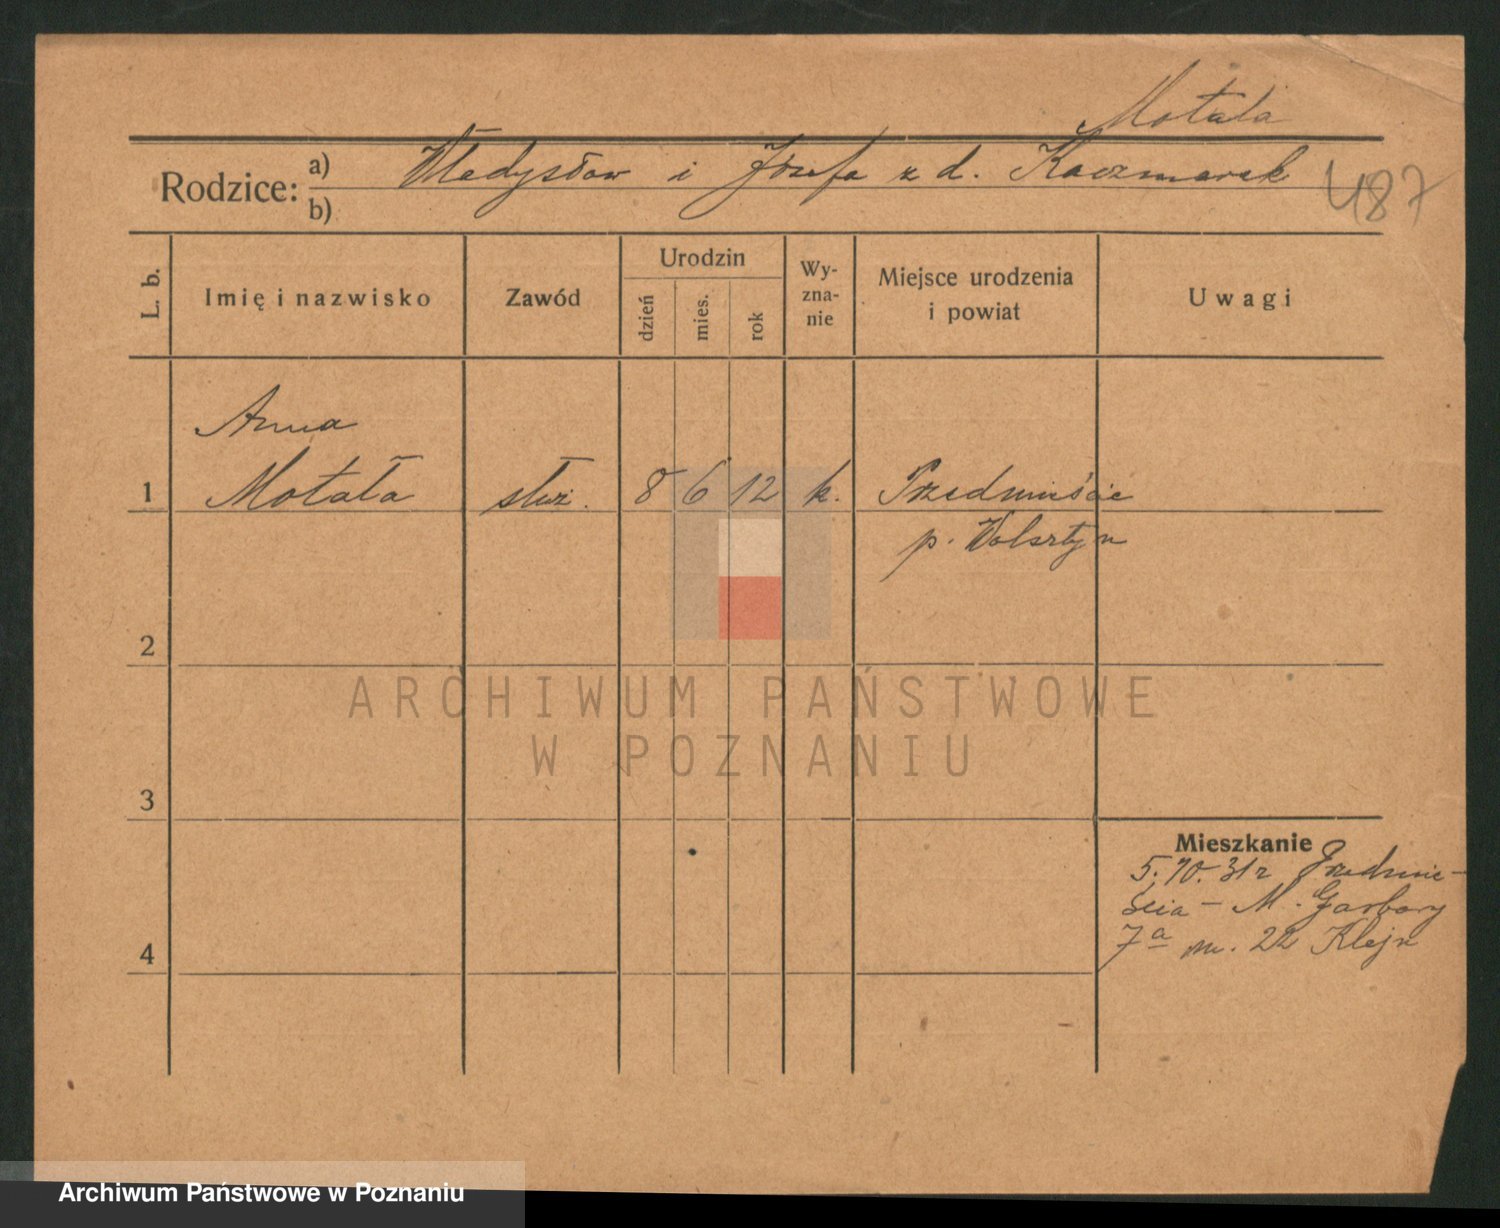 Motała
Rodzice: a) Władysław i Józefa z d. Kaczmarek
b)
487
L. b.
Imię i nazwisko
Zawód
Urodzin
dzień
mies.
rok
Wy-
zna-
nie
Miejsce urodzenia
i powiat
Uwagi
Anna
1 Motała służ. 8 6 12 k. Przedmieście
p. Wolsztyn
2
ARCHIWUM PAŃSTWOWE
W POZNANIU
3
Mieszkanie
5.10.31 r Przedmie-
ścia - M. Garbary
4
7a m. 22 Klejn
Archiwum Państwowe w Poznaniu